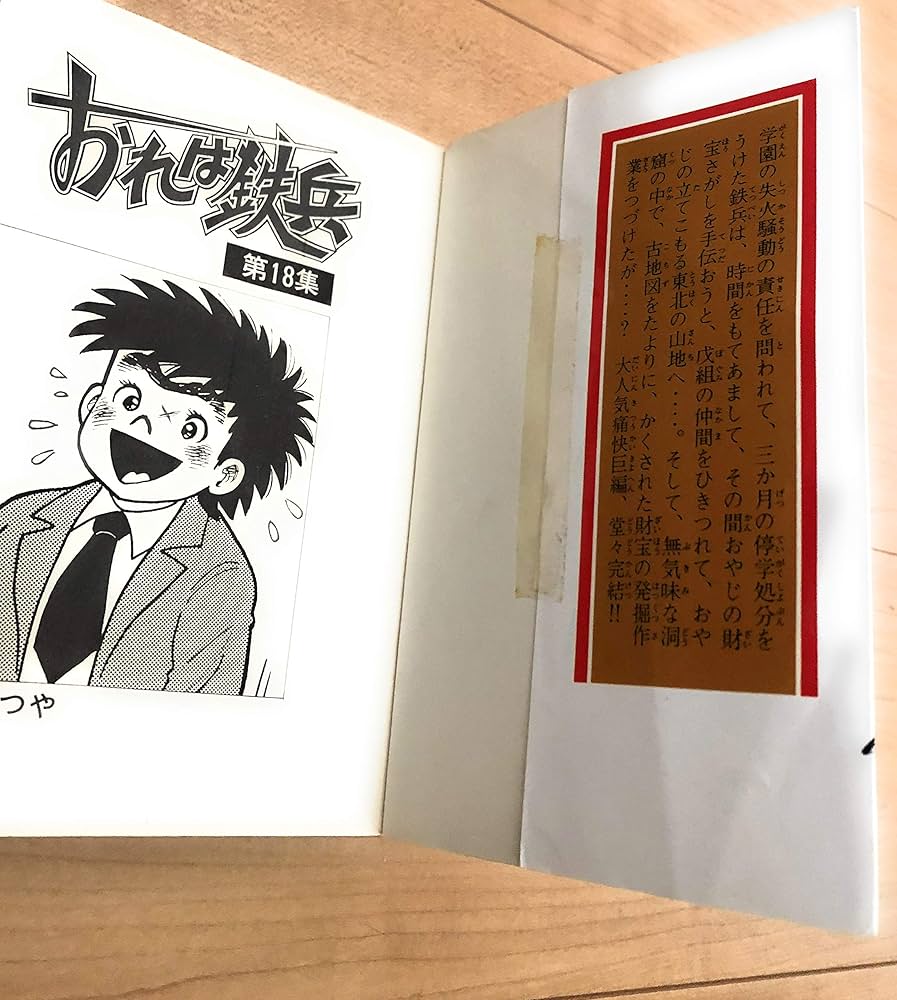 おれは鉄兵
第18集
つや
学園の失火騒動の責任を問われて、三か月の停学処分を
うけた鉄兵は、時間をもてあまして、その間おやじの財
宝さがしを手伝おうと、戊組の仲間をひきつれて、おや
じの立てこもる東北の山地へ‥‥。そして、無気味な洞
窟の中で、古地図をたよりに、かくされた財宝の発掘作
業をつづけたが‥‥？　大人気痛快巨編、堂々完結!!